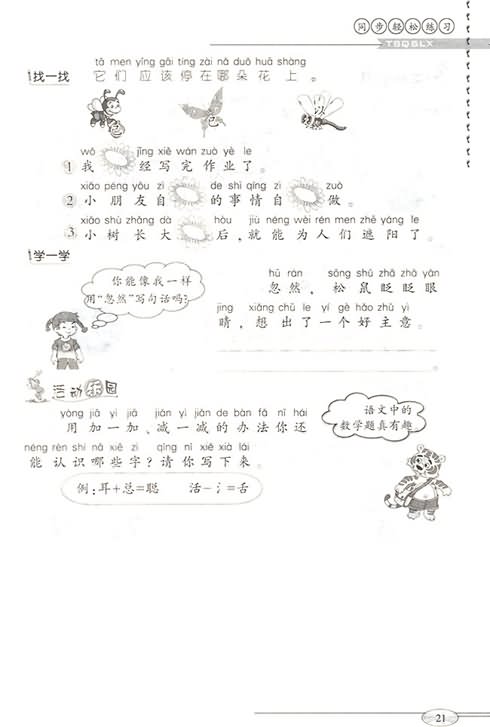 同步轻松练习
TBQSLX
tā men yīng gāi tíng zài nǎ duǒ huā shàng
找一找 它们应该停在哪朵花上。
wǒ jīng xiě wán zuò yè le
1 我 经写完作业了。
xiǎo péng yǒu zì de shì qíng zì zuò
2 小朋友自 的事情自 做。
xiǎo shù zhǎng dà hòu jiù néng wèi rén men zhē yáng le
3 小树长大 后,就能为人们遮阳了。
学一学
你能像我一样
用“忽然”写句话吗?
hū rán sōng shǔ zhǎ zhǎ yǎn
忽然,松鼠眨眨眼
jing xiǎng chū le yí gè hǎo zhǔ yì
睛,想出了一个好主意。
活动乐园
yòng jiā yì jiā jiǎn yì jiǎn de bàn fǎ nǐ hái
用加一加、减一减的办法你还
néng rèn shi nǎ xiē zì qǐng nǐ xiě xià lái
能认识哪些字?请你写下来。
例:耳+总=聪 活-氵=舌
语文中的
数学题真有趣
21